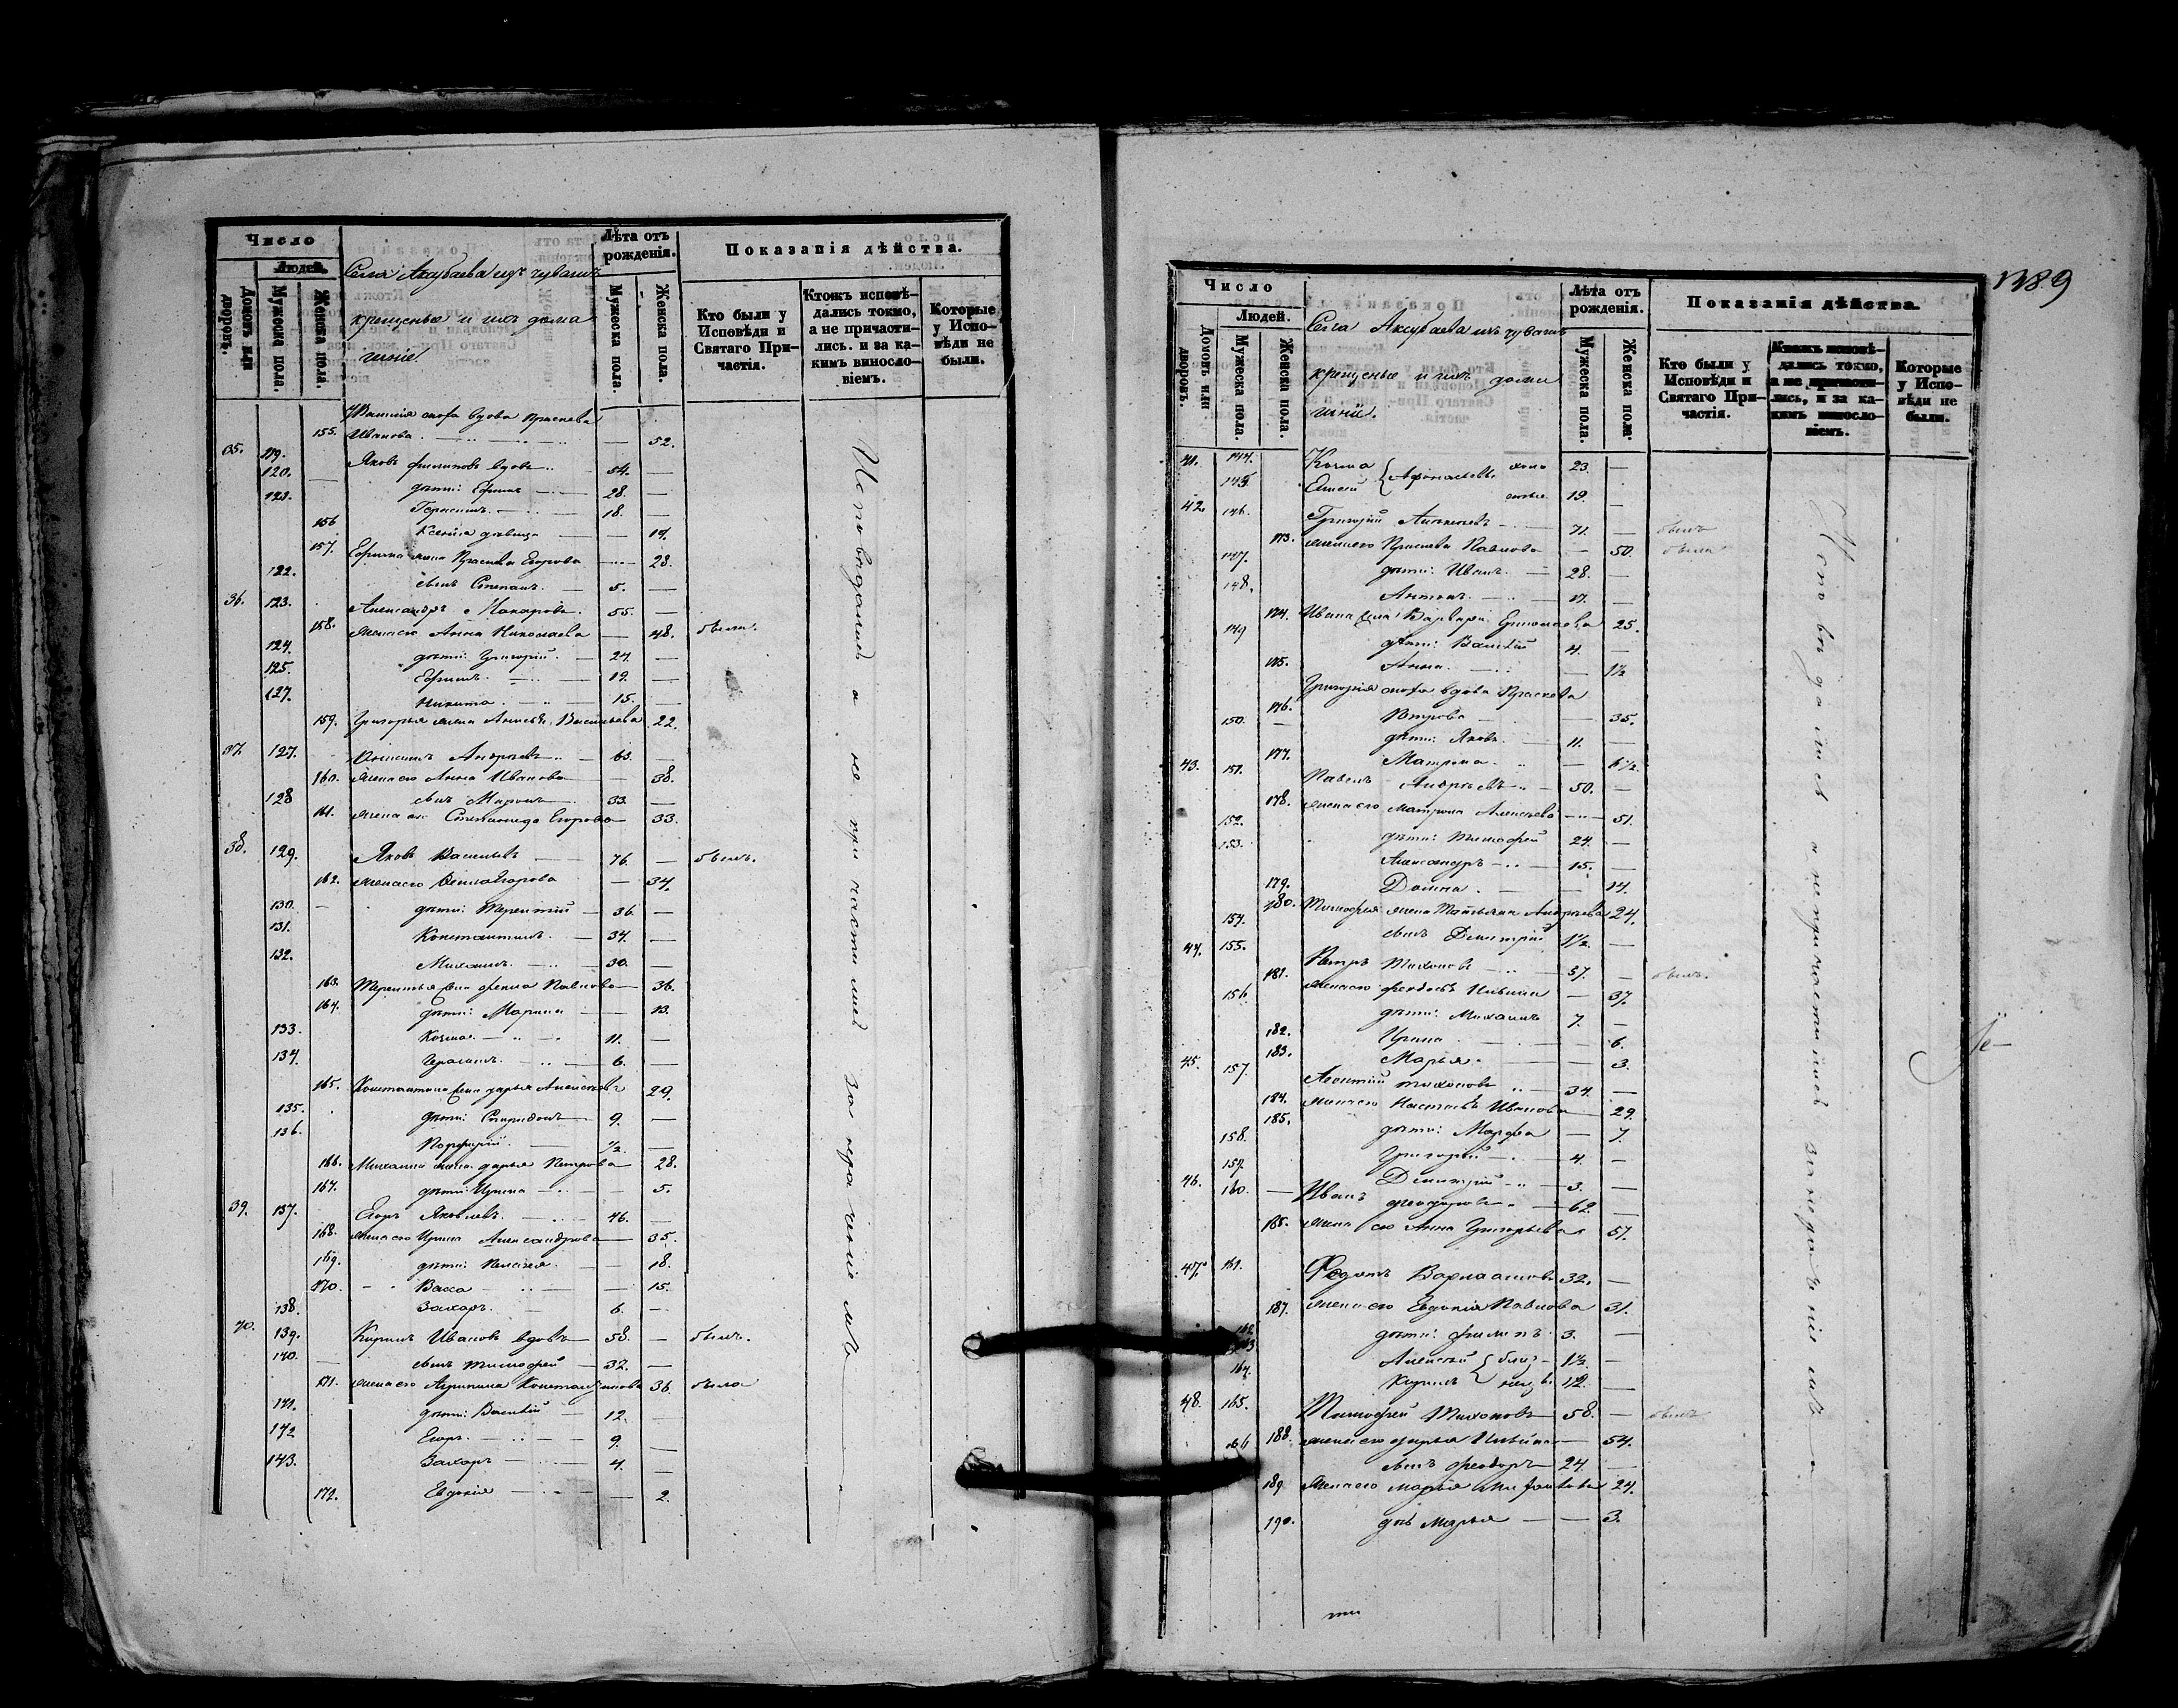 Число
Людей.
Домовъ или дворовъ.
Мужеска пола.
Женска пола.
Села Аксубаева изъ чувашъ
крещеные и ихъ дома
шніе.
Лѣта отъ рожденія.
Мужеска пола.
Женска пола.
Показанія дѣйства.
Кто были у Исповѣди и Святаго Причастія.
Ктожъ исповѣдались токмо, а не причастились. и за какимъ винословіемъ.
Которые у Исповѣди не были.
сноха вдова Праскева
155. Иванова 52.
35. 119. Яковъ Филиповъ вдовъ 54.
120. дѣти: Ефимъ 28.
121. Герасимъ 18.
156 Ксенія дѣвица
157. Ефима жена Праскева Егорова 28.
122. сынъ Степанъ 5.
36. 123. Александръ Макаровъ 55.
158. жена его Анна Николаева 48. была.
124. дѣти: Григорій 24.
125. Ефимъ 19.
127. Никита 15.
159. Григорья жена Васильева 22.
37. 127. Андреевъ 63.
160. жена его Анна Иванова 38.
128 сынъ Миронъ 33.
161. жена ег. Степанида Егорова 33.
38. 129. Яковъ Васильевъ 76. былъ.
162. жена его Егорова 34.
130. дѣти: Терентій 36.
131. Константинъ 34.
132. Михаилъ 30.
163. Терентья жена Фекла Павлова 36.
164. дѣти: Марина 13.
133. Козма 11.
134. Герасимъ 6.
165. Константина жена Дарья 29.
135. дѣти: Спиридонъ 9.
136. Порфирій ½
166. Михаила жена Дарья Петрова 28.
167. дѣти: Ирина 5.
39. 137. Егоръ Яковлевъ 46.
168. жена его Ирина Александрова 35.
169. дѣти: Пелагея 18.
170. Васса 15.
138. Захаръ 6.
40. 139. Кирилъ Ивановъ вдовъ 58. былъ.
140. сынъ Тимофей 32.
171. жена его Агрипина Константинова 36. была
141. дѣти: Василій 12.
142 Егоръ 9.
143. Захаръ 4.
172. Евдокія 2.
Исповѣдались а не причастились за нераченіемъ
1389
Число
Людей.
Домовъ или дворовъ.
Мужеска пола.
Женска пола.
Села Аксубаева изъ чувашъ
крещеные и ихъ дома
шніе.
Лѣта отъ рожденія.
Мужеска пола.
Женска пола.
Показанія дѣйства.
Кто были у Исповѣди и Святаго Причастія.
Ктожъ исповѣдались токмо, а не причастились, и за какимъ винословіемъ.
Которые у Исповѣди не были.
41. 144. Козма 23.
145. 19.
42. 146. Григорій 71. былъ
173. жена его Праскева Павлова 50. была
147. дѣти: Иванъ 28.
148. Антонъ 17.
174. Ивана жена Варвара 25.
149 дѣти: Василій 4.
175. Анна 1½
Григорія сноха вдова Праскева
176. Петрова 35.
150. дѣти: Яковъ 11.
177. Матрена 6½
43. 151. Павелъ Андреевъ 50.
178. жена его Матрена Алексѣева 51.
152. дѣти: Тимофей 24.
153. Александръ 15.
179. Домна 14.
180. Тимофея жена Татьяна Андреева 24.
154. сынъ Димитрій 1½
44. 155. Петръ Тихоновъ 37. былъ.
181. жена его 37.
156. дѣти: Михаилъ 7.
182. Ирина 6.
183. Марья 3.
45. 157. Леонтій Тихоновъ 34.
184. жена его Настасья Иванова 29.
185. дѣти: Марфа 7.
158. Григорій 4.
159. Димитрій 3.
46. 160. Иванъ Феодоровъ 62.
186. жена его Анна Григорьева 57.
47. 161. Федотъ Варламовъ 32.
187. жена его Евдокія Павлова 31.
162 дѣти: Филипъ 3.
163 Алексѣй 1½
164. Кирилъ близнецы 1½
48. 165. Тимофей Тихоновъ 58. былъ
188. жена его Дарья 54.
166 сынъ Феодоръ 24.
189. жена его Марья 24.
190. дочь Марья 3.
Исповѣдались а не причастились за нераденіемъ